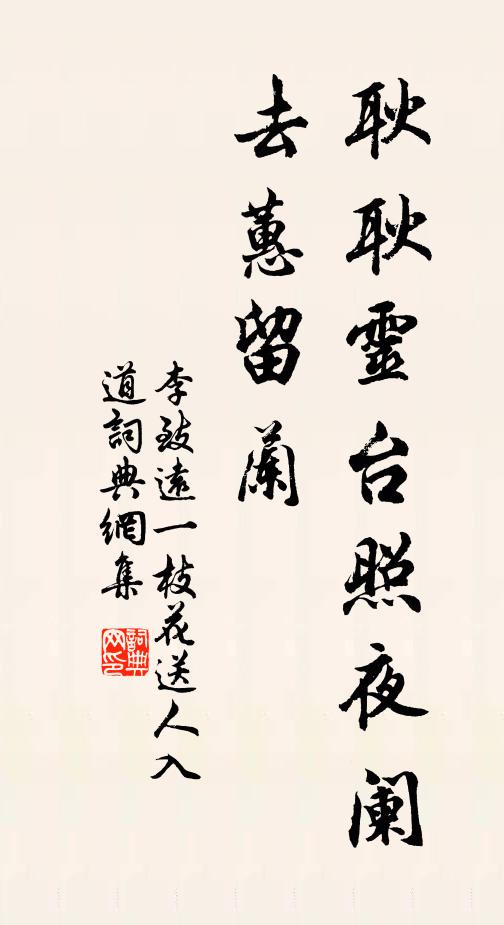 耿耿靈台照夜闌
去蕙留蘭
李致遠一枝花送人入
道詞典網集
詞典
网印